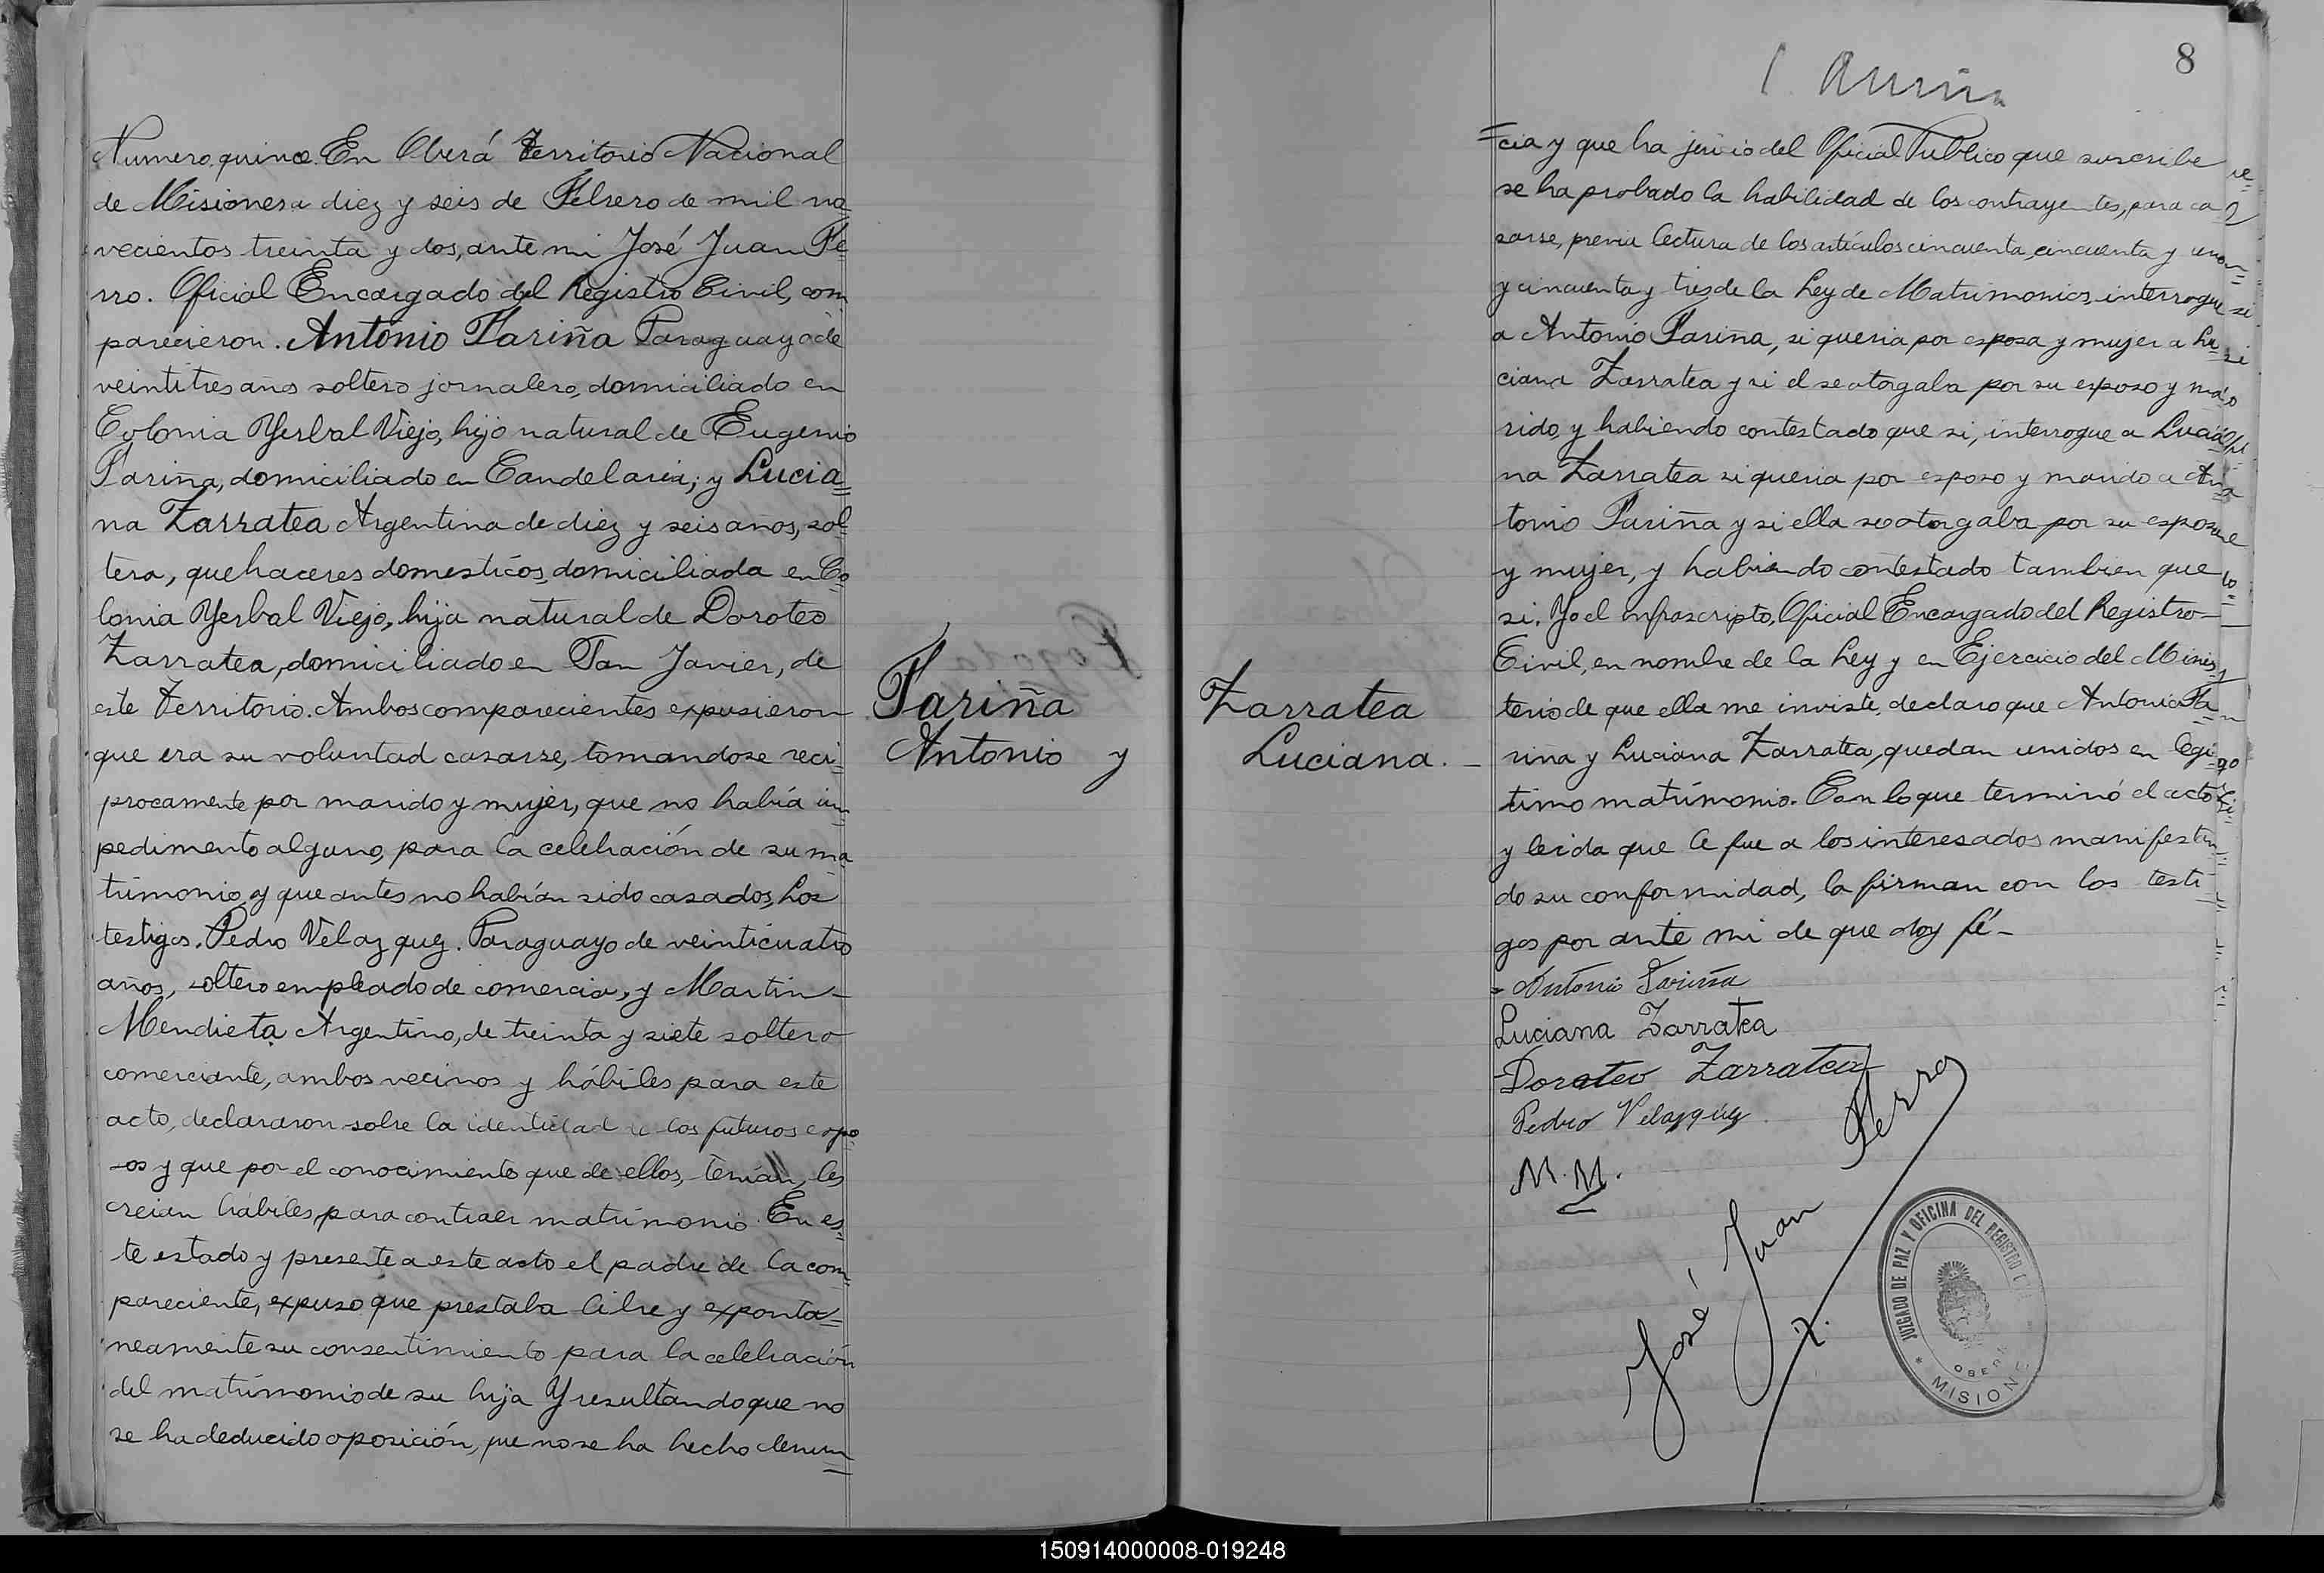 Numero quince. En Oberá Territorio Nacional
de Misiones a diez y seis de Febrero de mil no
vecientos treinta y dos, ante mi José Juan Fe=
rro. Oficial Encargado del Registro Civil, com
parecieron. Antonio Fariña Paraguayo de
veintitres años soltero jornalero, domiciliado en
Colonia Yerbal Viejo, hijo natural de Eugenio
Fariña, domiciliado en Candelaria; y Lucia=
na Zarratea Argentina de diez y seis años, sol=
tera, quehaceres domesticos, domiciliada en Co=
lonia Yerbal Viejo, hija natural de Doroteo
Zarratea, domiciliado en San Javier, de
este Territorio. Ambos comparecientes expusieron
que era su voluntad casarse, tomandose reci=
procamente por marido y mujer, que no había im=
pedimento alguno, para la celebración de su ma
trimonio, y que antes no habían sido casados, Los
testigos. Pedro Velazquez. Paraguayo de veinticuatro
años, soltero empleado de comercio, y Martin
Mendieta Argentino, de treinta y siete soltero
comerciante, ambos vecinos y hábiles para este
acto, declararon sobre la identidad de los futuros espo
sos y que por el conocimiento que de ellos, tenían, les
creian habiles, para contraer matrimonio. En es=
te estado y presente a este acto el padre de la com=
pareciente, expuso que prestaba libre y exponta=
neamente su consentimiento para la celebración
del matrimonio de su hija Y resultando que no
se ha deducido oposición, que no se ha hecho denun=
Fariña
Antonio y
Zarratea
Luciana.
8
=cia y que ha juicio del Oficial Publico que suscribe
se ha probado la habilidad de los contrayentes, para ca
sarse, previa lectura de los artículos cincuenta, cincuenta y uno
y cincuenta y tres de la Ley de Matrimonios, interrogue
a Antonio Fariña, si queria por esposa y mujer a Lu
ciana Zarratea y si el se otorgaba por su esposo y ma
rido, y habiendo contestado que si, interrogue a Lucia
na Zarratea si queria por esposo y marido a An
tonio Fariña y si ella se otorgaba por su esposa
y mujer, y habiendo contestado tambien que
si. Yo el infrascripto, Oficial Encargado del Registro
Civil, en nombre de la Ley y en Ejercicio del Minis
terio de que ella me inviste, declaro que Antonio Fa
riña y Luciana Zarratea, quedan unidos en legi
timo matrimonio. Con lo que terminó el acto
y leida que le fue a los interesados manifestan
do su conformidad, la firman con los testi
gos por ante mi de que doy fé-
Antonio Fariña
Luciana Zarratea
Doroteo Zarratea
Pedro Velazquez
M. M.
José Juan Ferro
JUZGADO DE PAZ Y OFICINA DEL REGISTRO C
OBERÁ
MISIONES
150914000008-019248